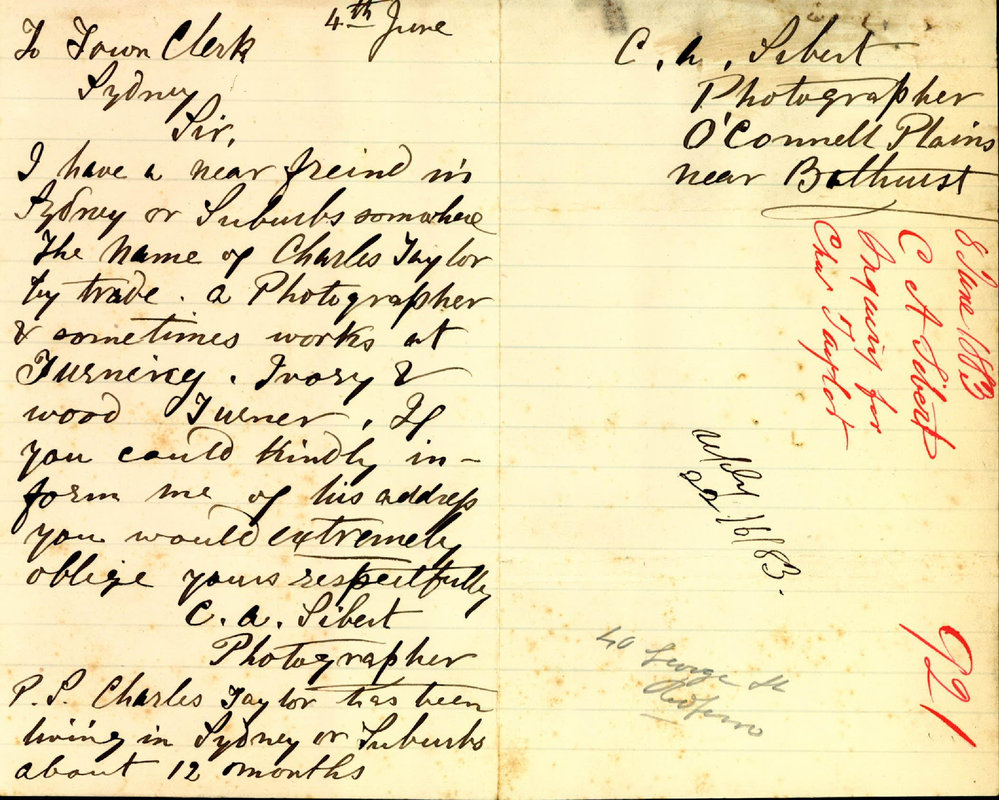 4th June
To Town Clerk
Sydney
Sir,
I have a near freind in
Sydney or Suburbs somwhere
The Name of Charles Taylor
by trade . a Photographer
& sometimes works at
Turnering . Ivory &
wood Turner , If
you could kindly in-
form me of his address
you would extremely
oblige yours respectfully
C. A. Sibert
Photographer
P. S. Charles Taylor has been
living in Sydney or Suburbs
about 12 months
C. A. Sibert
Photographer
O'Connell Plains
near Bathurst
8 June 1883
C A Sibert
Inquiry for
Chas Taylor
reply
22/6/83.
40 George St
921